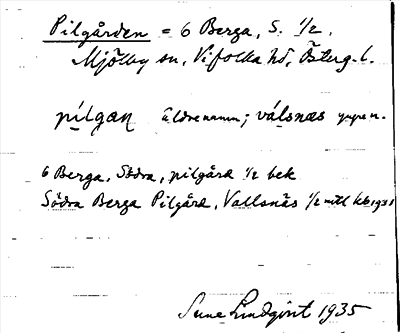 Pilgården = 6 Berga, S. 1/2
Mjölby sn, Vifolka hd, Österg. l.
pilgan äldre namn; válsnas yngre n.
6 Berga, Södra, pilgård 1/2 bek
Södra Berga Pilgård, Vallsnäs 1/2 mtl
Sune Lindqvist 1935